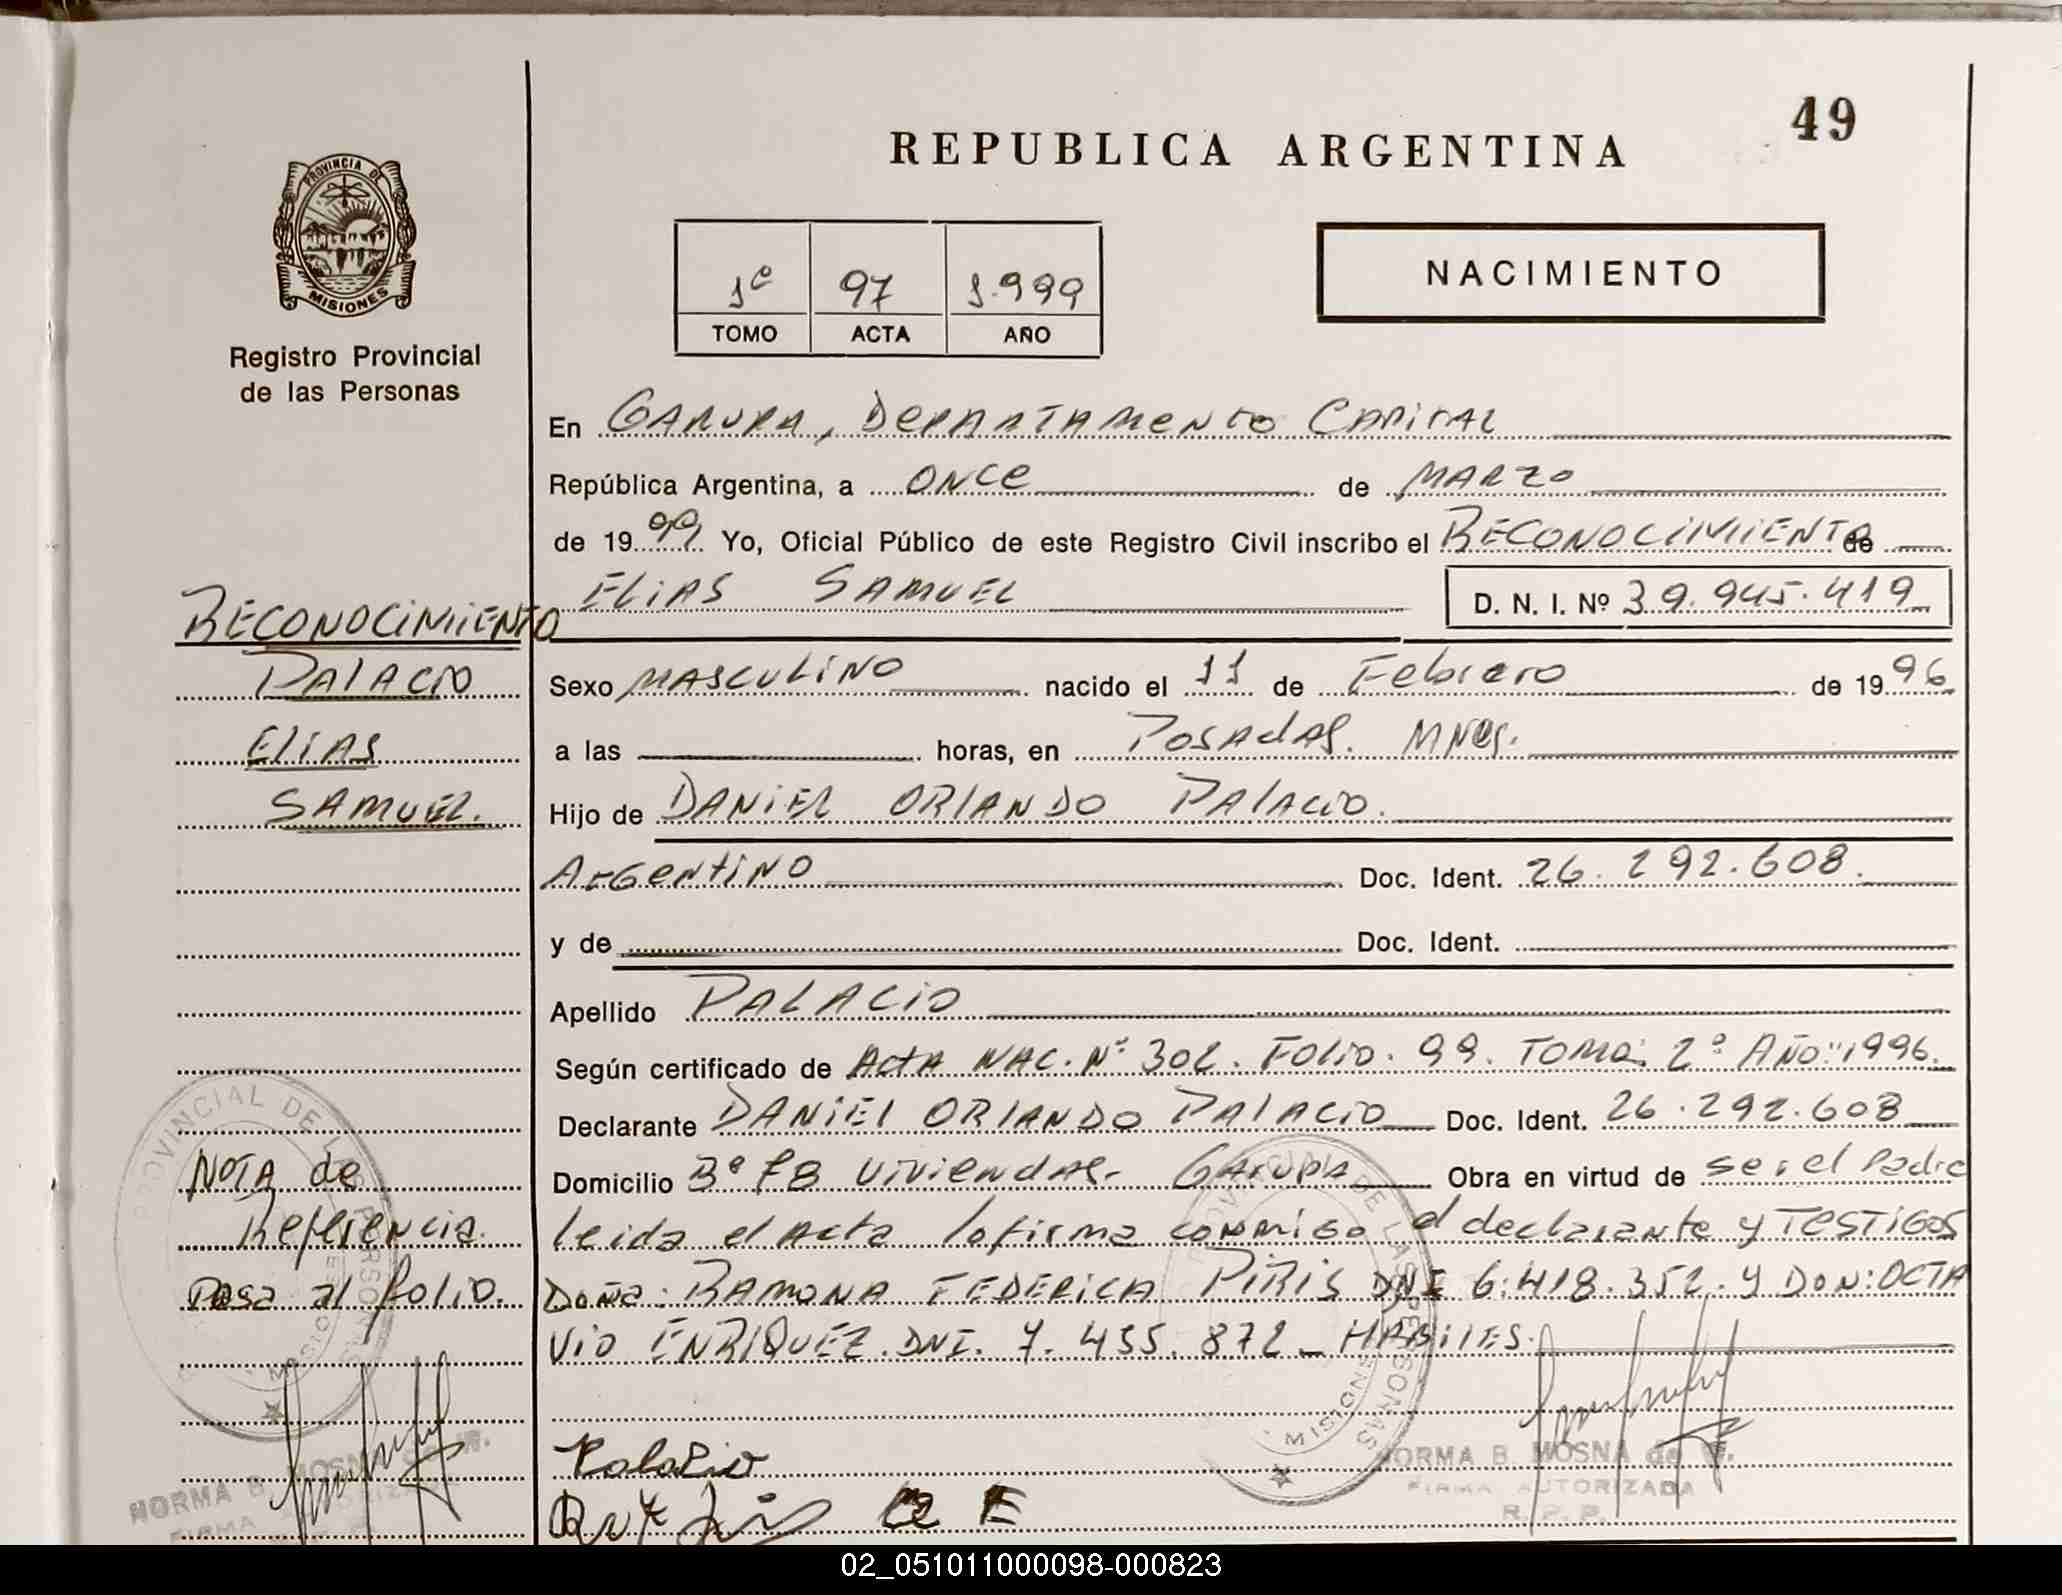 49
REPUBLICA ARGENTINA
PROVINCIA DE
MISIONES
Registro Provincial
de las Personas
1º 97 1.999
TOMO ACTA AÑO
NACIMIENTO
En GARUPA, DEPARTAMENTO CAPITAL
República Argentina, a ONCE de MARZO
de 1999 Yo, Oficial Público de este Registro Civil inscribo el RECONOCIMIENTO de
ELIAS SAMUEL D. N. I. Nº 39.945.419
RECONOCIMIENTO
PALACIO
ELIAS
SAMUEL.
Sexo MASCULINO nacido el 11 de Febrero de 1996
a las horas, en POSADAS. MNES.
Hijo de DANIEL ORLANDO PALACIO.
ArGentiNO Doc. Ident. 26.292.608.
y de Doc. Ident.
Apellido PALACIO
Según certificado de ActA NAC. Nº 302. FOLIO. 99. TOMO: 2º AÑO: 1996.
Declarante DANIEL ORLANDO PALACIO Doc. Ident. 26.292.608
Domicilio Bº 78 VIVIENDAS. GARUPA Obra en virtud de ser el Padre
leida el Acta la firma conmigo el declarante y TESTIGOS
Doña: RAMONA FEDERICA PIRIS DNI 6.418.352. Y DON: OCTA
VIO ENRIQUEZ. DNI. 7.455.872 HABILES.
NOTA de
Referencia.
Pasa al folio.
PROVINCIAL DE LAS PERSONAS
MISIONES
PROVINCIAL DE LAS PERSONAS
MISIONES
Palacio
NORMA B. MOSNA de W.
FIRMA AUTORIZADA
R. P. P.
NORMA B. MOSNA de W.
FIRMA AUTORIZADA
02_051011000098-000823